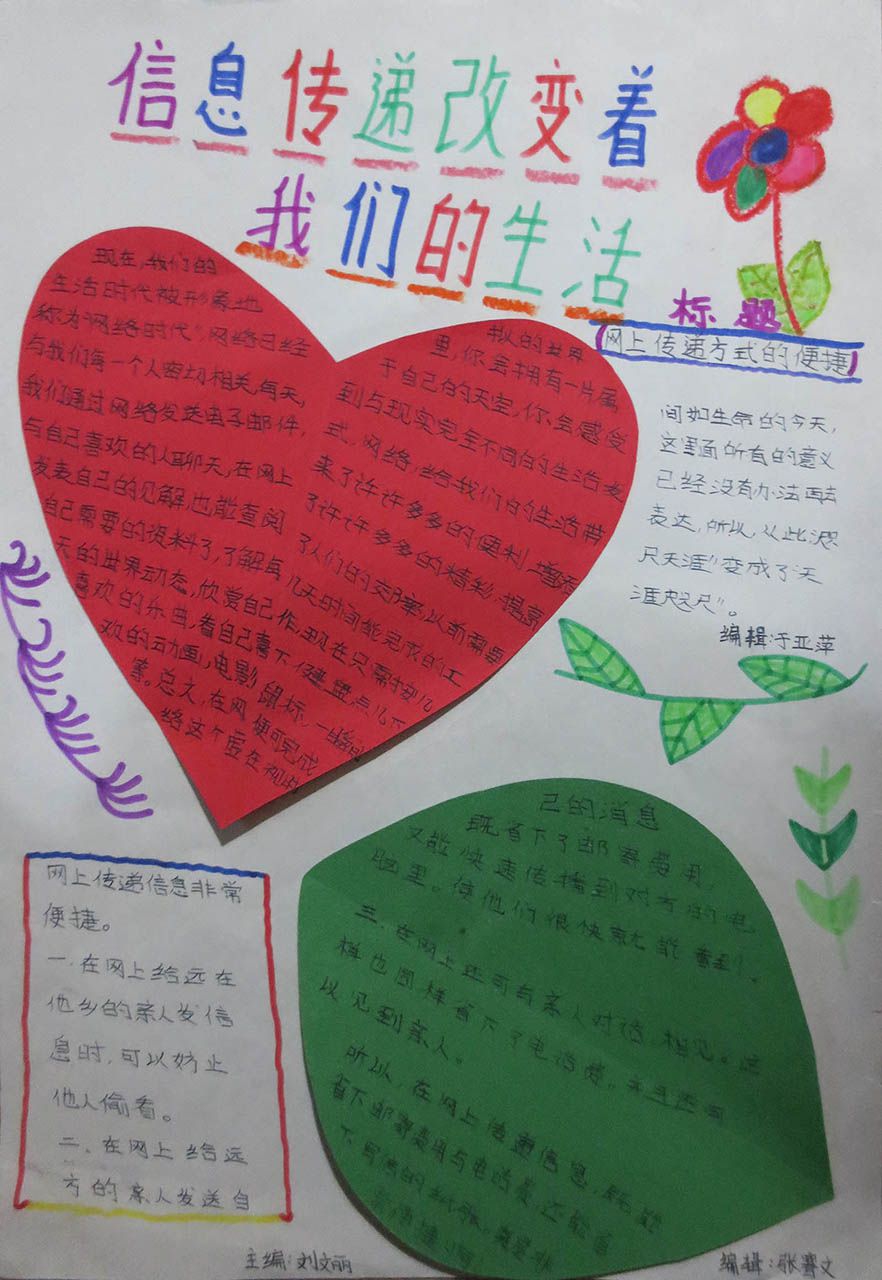 信息传递改变着
我们的生活
标题
网上传递方式的便捷
现在,我们的
生活时代被形象地
称为"网络时代",网络已经
与我们每一个人密切相关,每天,
我们通过网络发送电子邮件,
与自己喜欢的人聊天,在网上
发表自己的见解,也能查阅
自己需要的资料了,了解每
天的世界动态,欣赏自己
喜欢的乐曲,看自己喜
欢的动画,电影
案。总之,在网
络这个虚在
拟的世界
里,你会拥有一片属
于自己的天空,你会感受
到与现实完全不同的生活
式,网络,给我们的生活带
来了许许多多的便利,增添
了许许多多的精彩,提高
了人们的效率,以前需要
几天时间能完成的工
作,现在只需按几
下键盘,点几下
鼠标,一瞬间
便可完成
间如生命的今天,
这里面所有的意义
已经没有办法再去
表达,所以,从此"咫
尺天涯"变成了"天
涯咫尺"。
编辑:于亚萍
网上传递信息非常
便捷。
一.在网上给远在
他乡的亲人发信
息时,可以防止
他人偷看。
二、在网上给远
方的亲人发送自
己的消息
既省下了邮寄费用,
又能快速传播到对方的电
脑里。使他们很快就能看到!
三、在网上还可与亲人对话,相见。这
样也同样省下了电话费,并且还可
以见到亲人。
所以,在网上传递信息,既能
省下邮寄费用与电话费,还能省
下写信的
主编:刘文丽
编辑:张赛文